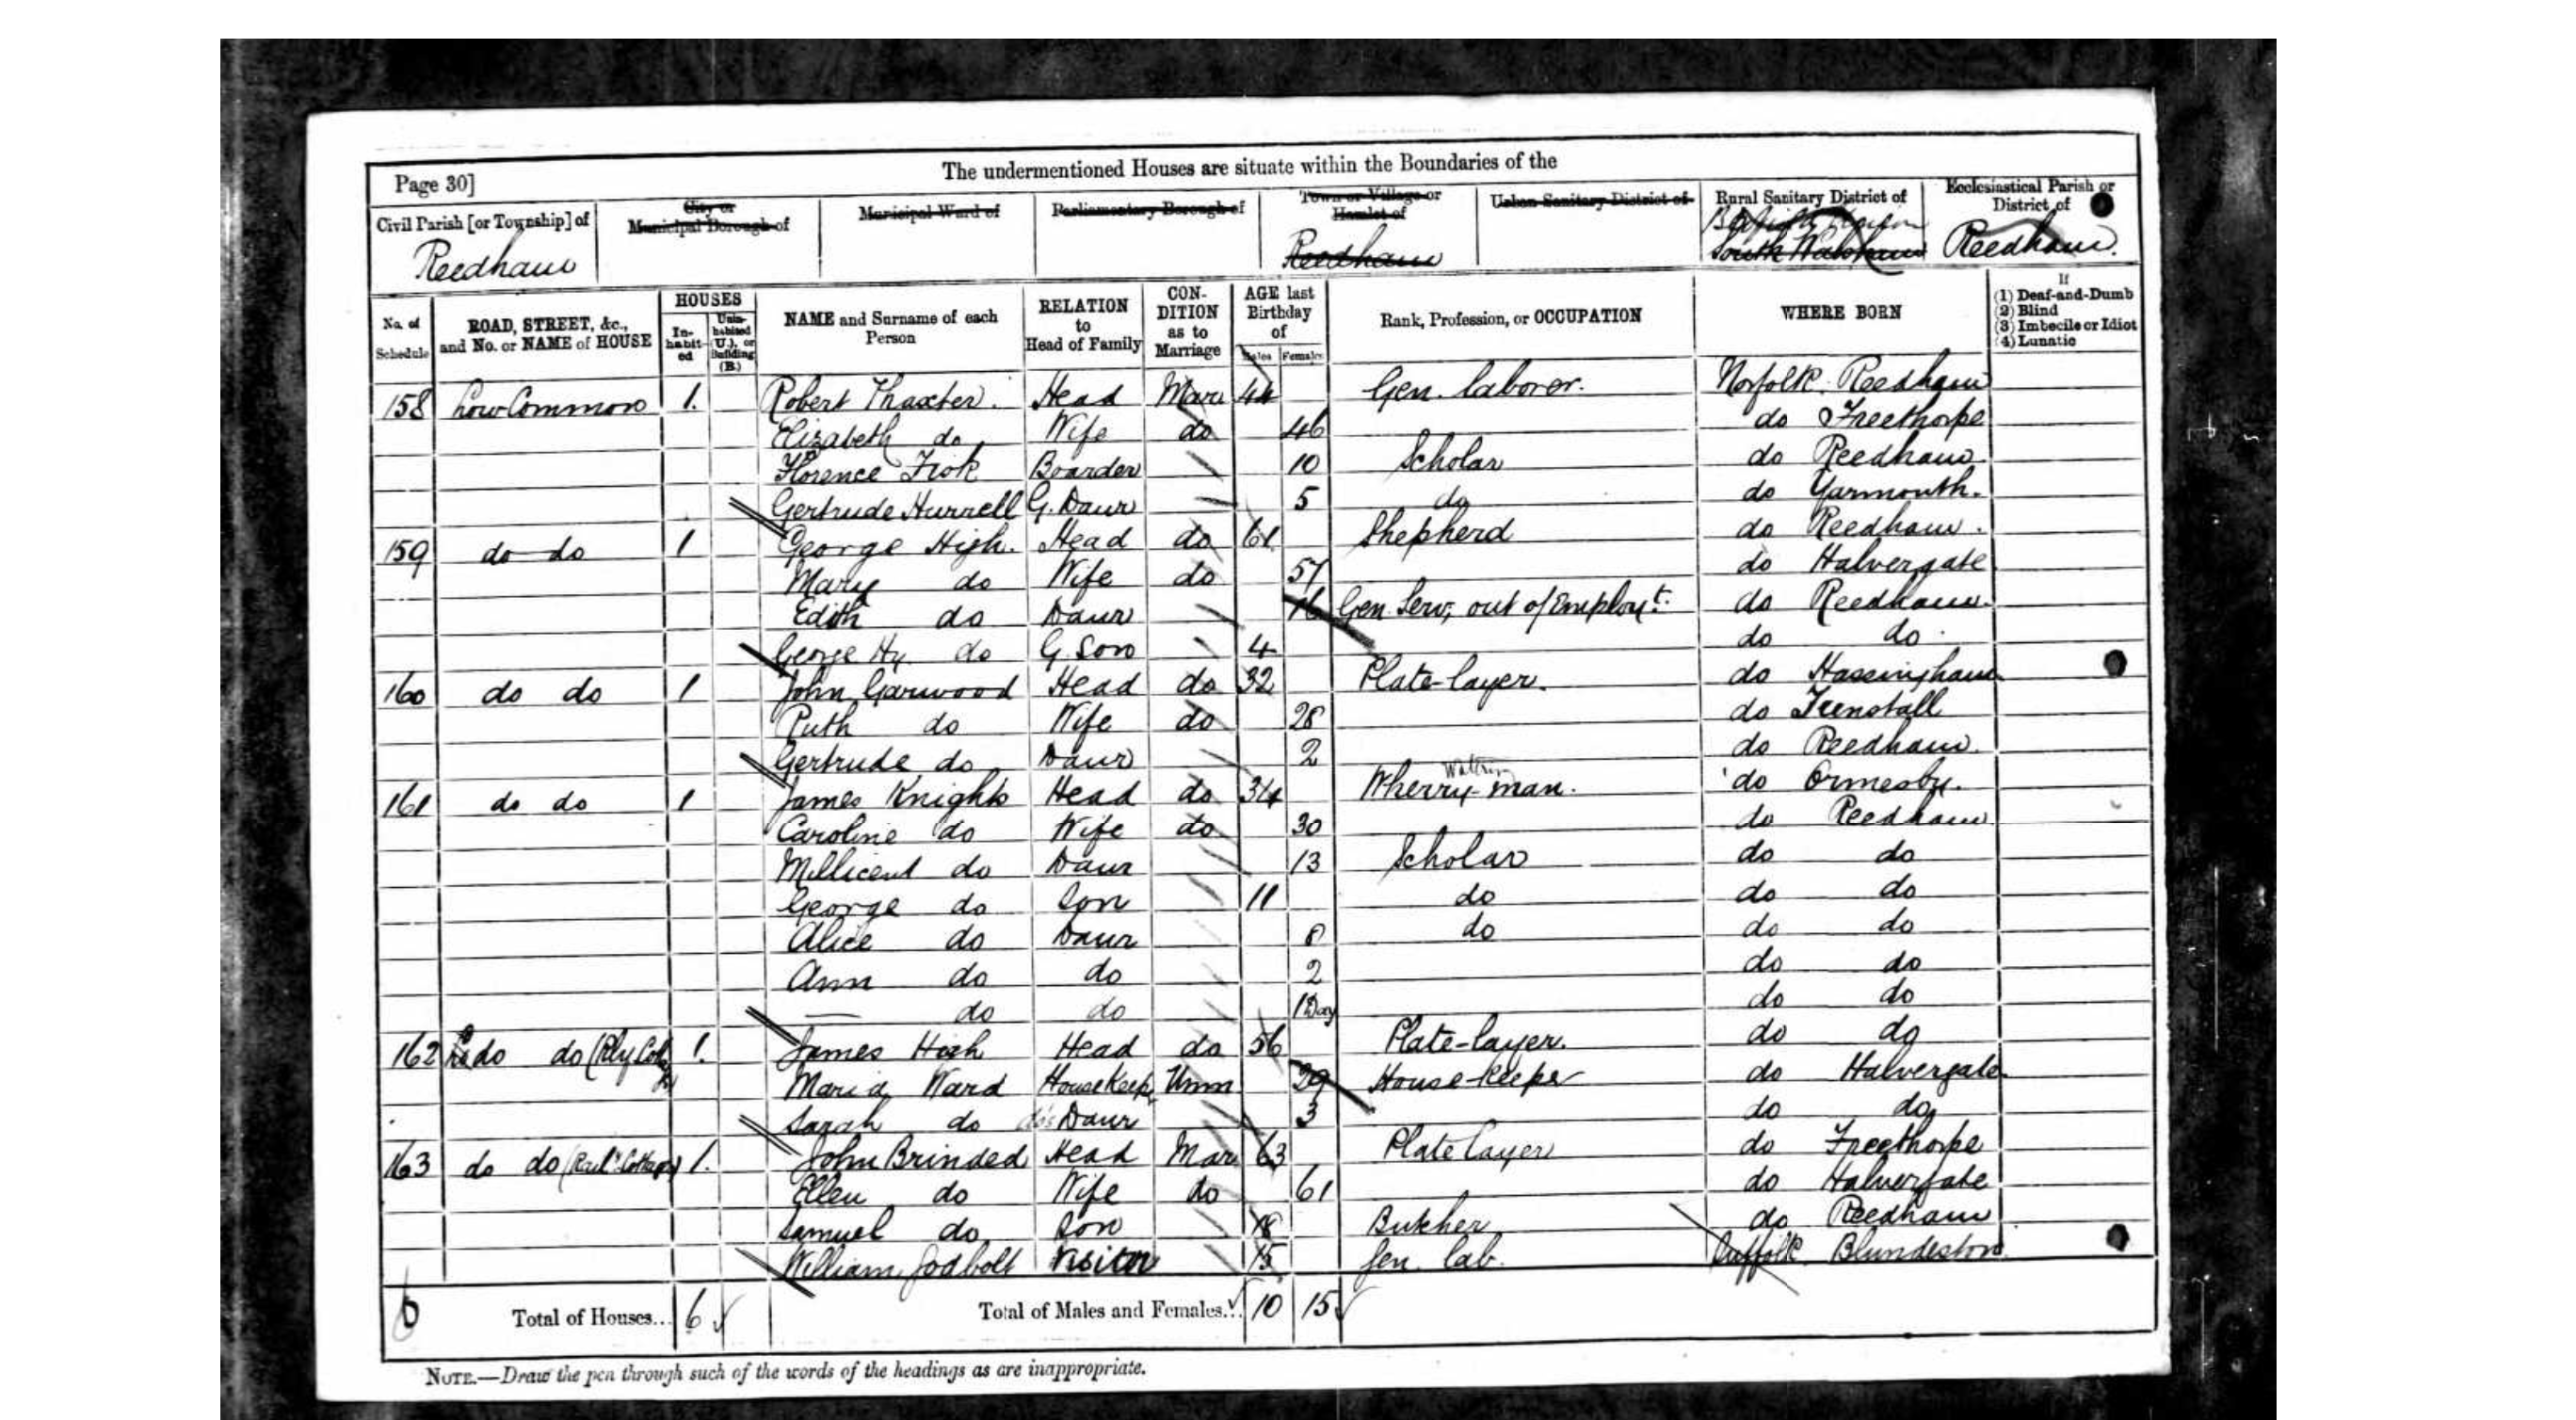 The undermentioned Houses are situate within the Boundaries of the
Page 30]
Civil Parish [or Township] of
City or Municipal Borough of
Municipal Ward of
Parliamentary Borough of
Town or Village or Hamlet of
Urban Sanitary District of
Rural Sanitary District of
Ecclesiastical Parish or District of
Reedham Reedham South Walsham Reedham.
No. of Schedule
ROAD, STREET, &c., and No. or NAME of HOUSE
HOUSES
In-habit-ed
Unin-habited (U.), or Building (B.)
NAME and Surname of each Person
RELATION to Head of Family
CON-DITION as to Marriage
AGE last Birthday of
Males Females
Rank, Profession, or OCCUPATION
WHERE BORN
If
(1) Deaf-and-Dumb
(2) Blind
(3) Imbecile or Idiot
(4) Lunatic
158 Low Common 1. Robert Thaxter. Head Mar 44 Gen. laborer. Norfolk. Reedham
Elizabeth do Wife do 46 do Freethorpe
Florence Boarder 10 Scholar do Reedham.
Gertrude Hurrell G. Daur 5 do do Yarmouth.
159 do do 1 George High. Head do 61 Shepherd do Reedham.
Mary do Wife do 57 do Halvergate
Edith do Daur 16 Gen. Serv, out of Employt. do Reedham.
George Hy. do G. Son 4 do do.
160 do do 1 John Garwood Head do 32 Plate-layer. do Hassingham
Ruth do Wife do 28 do Tunstall
Gertrude do Daur 2 do Reedham.
161 do do 1 James Knights Head do 34 Wherry-man. do Ormesby.
Caroline do Wife do 30 do Reedham
Millicent do Daur 13 Scholar do do
George do Son 11 do do do
Alice do Daur 8 do do do
Ann do do 2 do do
— do do 1 Day do do
162 do do (Rly Cottage) 1. James High Head do 56 Plate-layer. do do
Maria Ward HouseKeep. Unm 29 House-keeper do Halvergate.
Sarah do do's Daur 3 do do
163 do do (Railw Cottage) 1. John Brinded Head Mar 63 Plate layer do Freethorpe
Ellen do Wife do 61 do Halvergate
Samuel do Son 18 Butcher do Reedham
William Godbolt Visitor 15 Gen. lab. Suffolk Blundeston
6 Total of Houses... 6 Total of Males and Females... 10 15
NOTE.—Draw the pen through such of the words of the headings as are inappropriate.